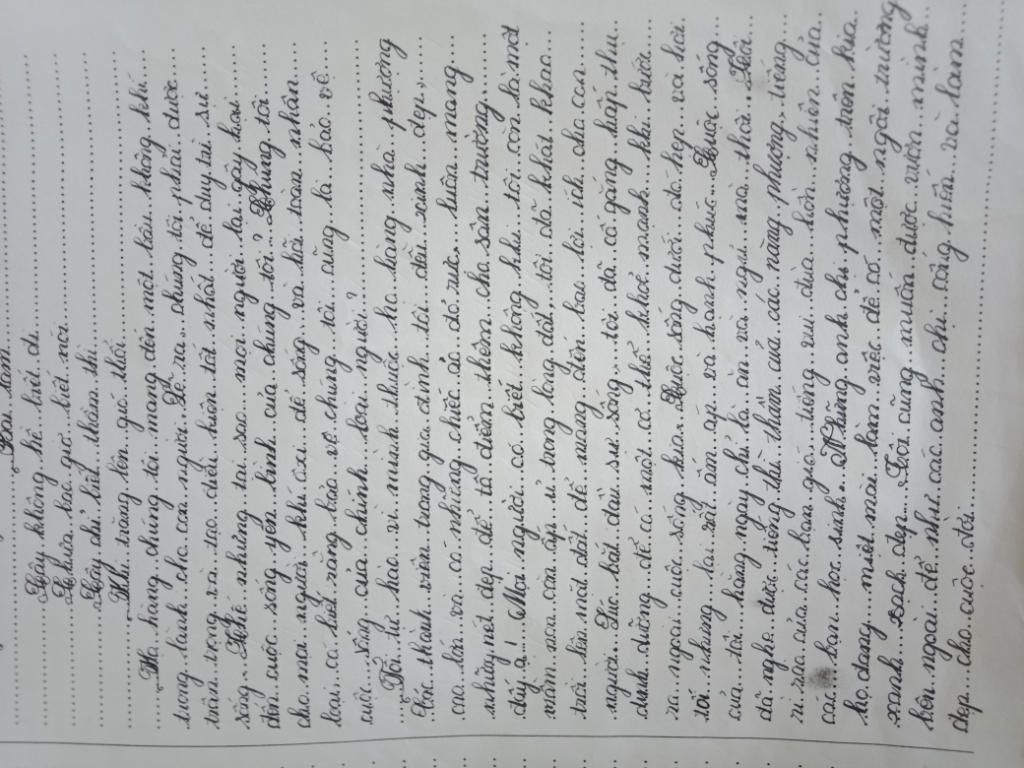 Cây không hề biết đi
Chưa bao giờ biết nói
Cây chỉ biết thầm thì
Khi trăng lên gió thổi
Họ hàng chúng tôi mang đến một bầu không khí
trong lành cho con người. Lẽ ra, chúng tôi phải được
trân trọng và tạo điều kiện tốt nhất để duy trì sự
sống. Thế nhưng tại sao mọi người lại gây hại
đến cuộc sống yên bình của chúng tôi? Chúng tôi
cho mọi người khí oxi để sống và hỡi toàn nhân
loại có biết rằng bảo vệ chúng tôi cũng là bảo vệ
cuộc sống của chính loài người?
Tôi tự hào vì mình thuộc họ hàng nhà phượng
Các thành viên trong gia đình tôi đều xinh đẹp,
cao lớn và có những chiếc áo đỏ rực, luôn mang
những nét đẹp để tô điểm thêm cho sân trường
đấy ạ! Mọi người có biết không khi tôi còn là một
mầm non còn ấp ủ trong lòng đất, tôi đã khát khao
trồi lên mặt đất để mang đến bao lợi ích cho con
người. Lúc bắt đầu sự sống, tôi đã cố gắng hấp thu
dinh dưỡng để có một cơ thể khoẻ mạnh khi bước
ra ngoài cuộc sống kia. Cuộc sống dưới đó hẹp và hơi
tối nhưng lại rất ấm áp và hạnh phúc. Cuộc sống
của tôi hằng ngày chỉ là ăn và ngủ mà thôi. Tôi
đã nghe được tiếng thì thầm của các nàng phượng, tiếng
rì rả của các bạn gió, tiếng vui đùa hồn nhiên của
các bạn học sinh. Những anh chị phượng trên kia
họ đang miệt mài làm việc để có một ngôi trường
xanh sạch đẹp. Tôi cũng muốn được vươn mình
bên ngoài để như các anh chị cống hiến và làm
đẹp cho cuộc đời